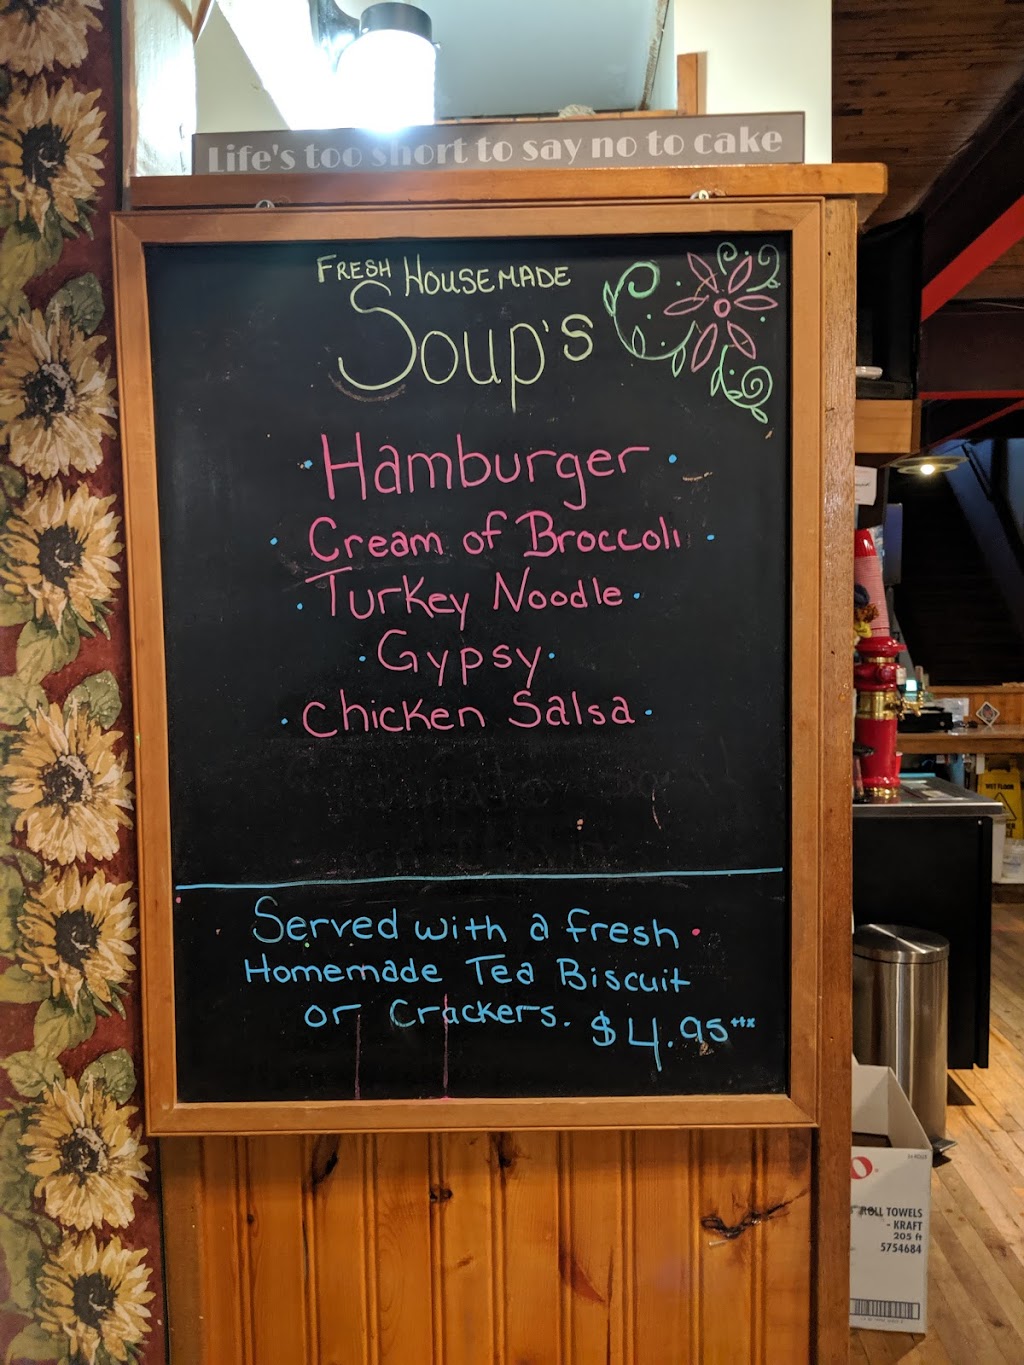 Life's too short to say no to cake
FRESH HOUSEMADE
Soup's
Hamburger
Cream of Broccoli
Turkey Noodle
Gypsy
Chicken Salsa
Served with a fresh
Homemade Tea Biscuit
or Crackers. $4.95 +tx
WET FLOOR
ROLL TOWELS
- KRAFT
205 ft
5754684